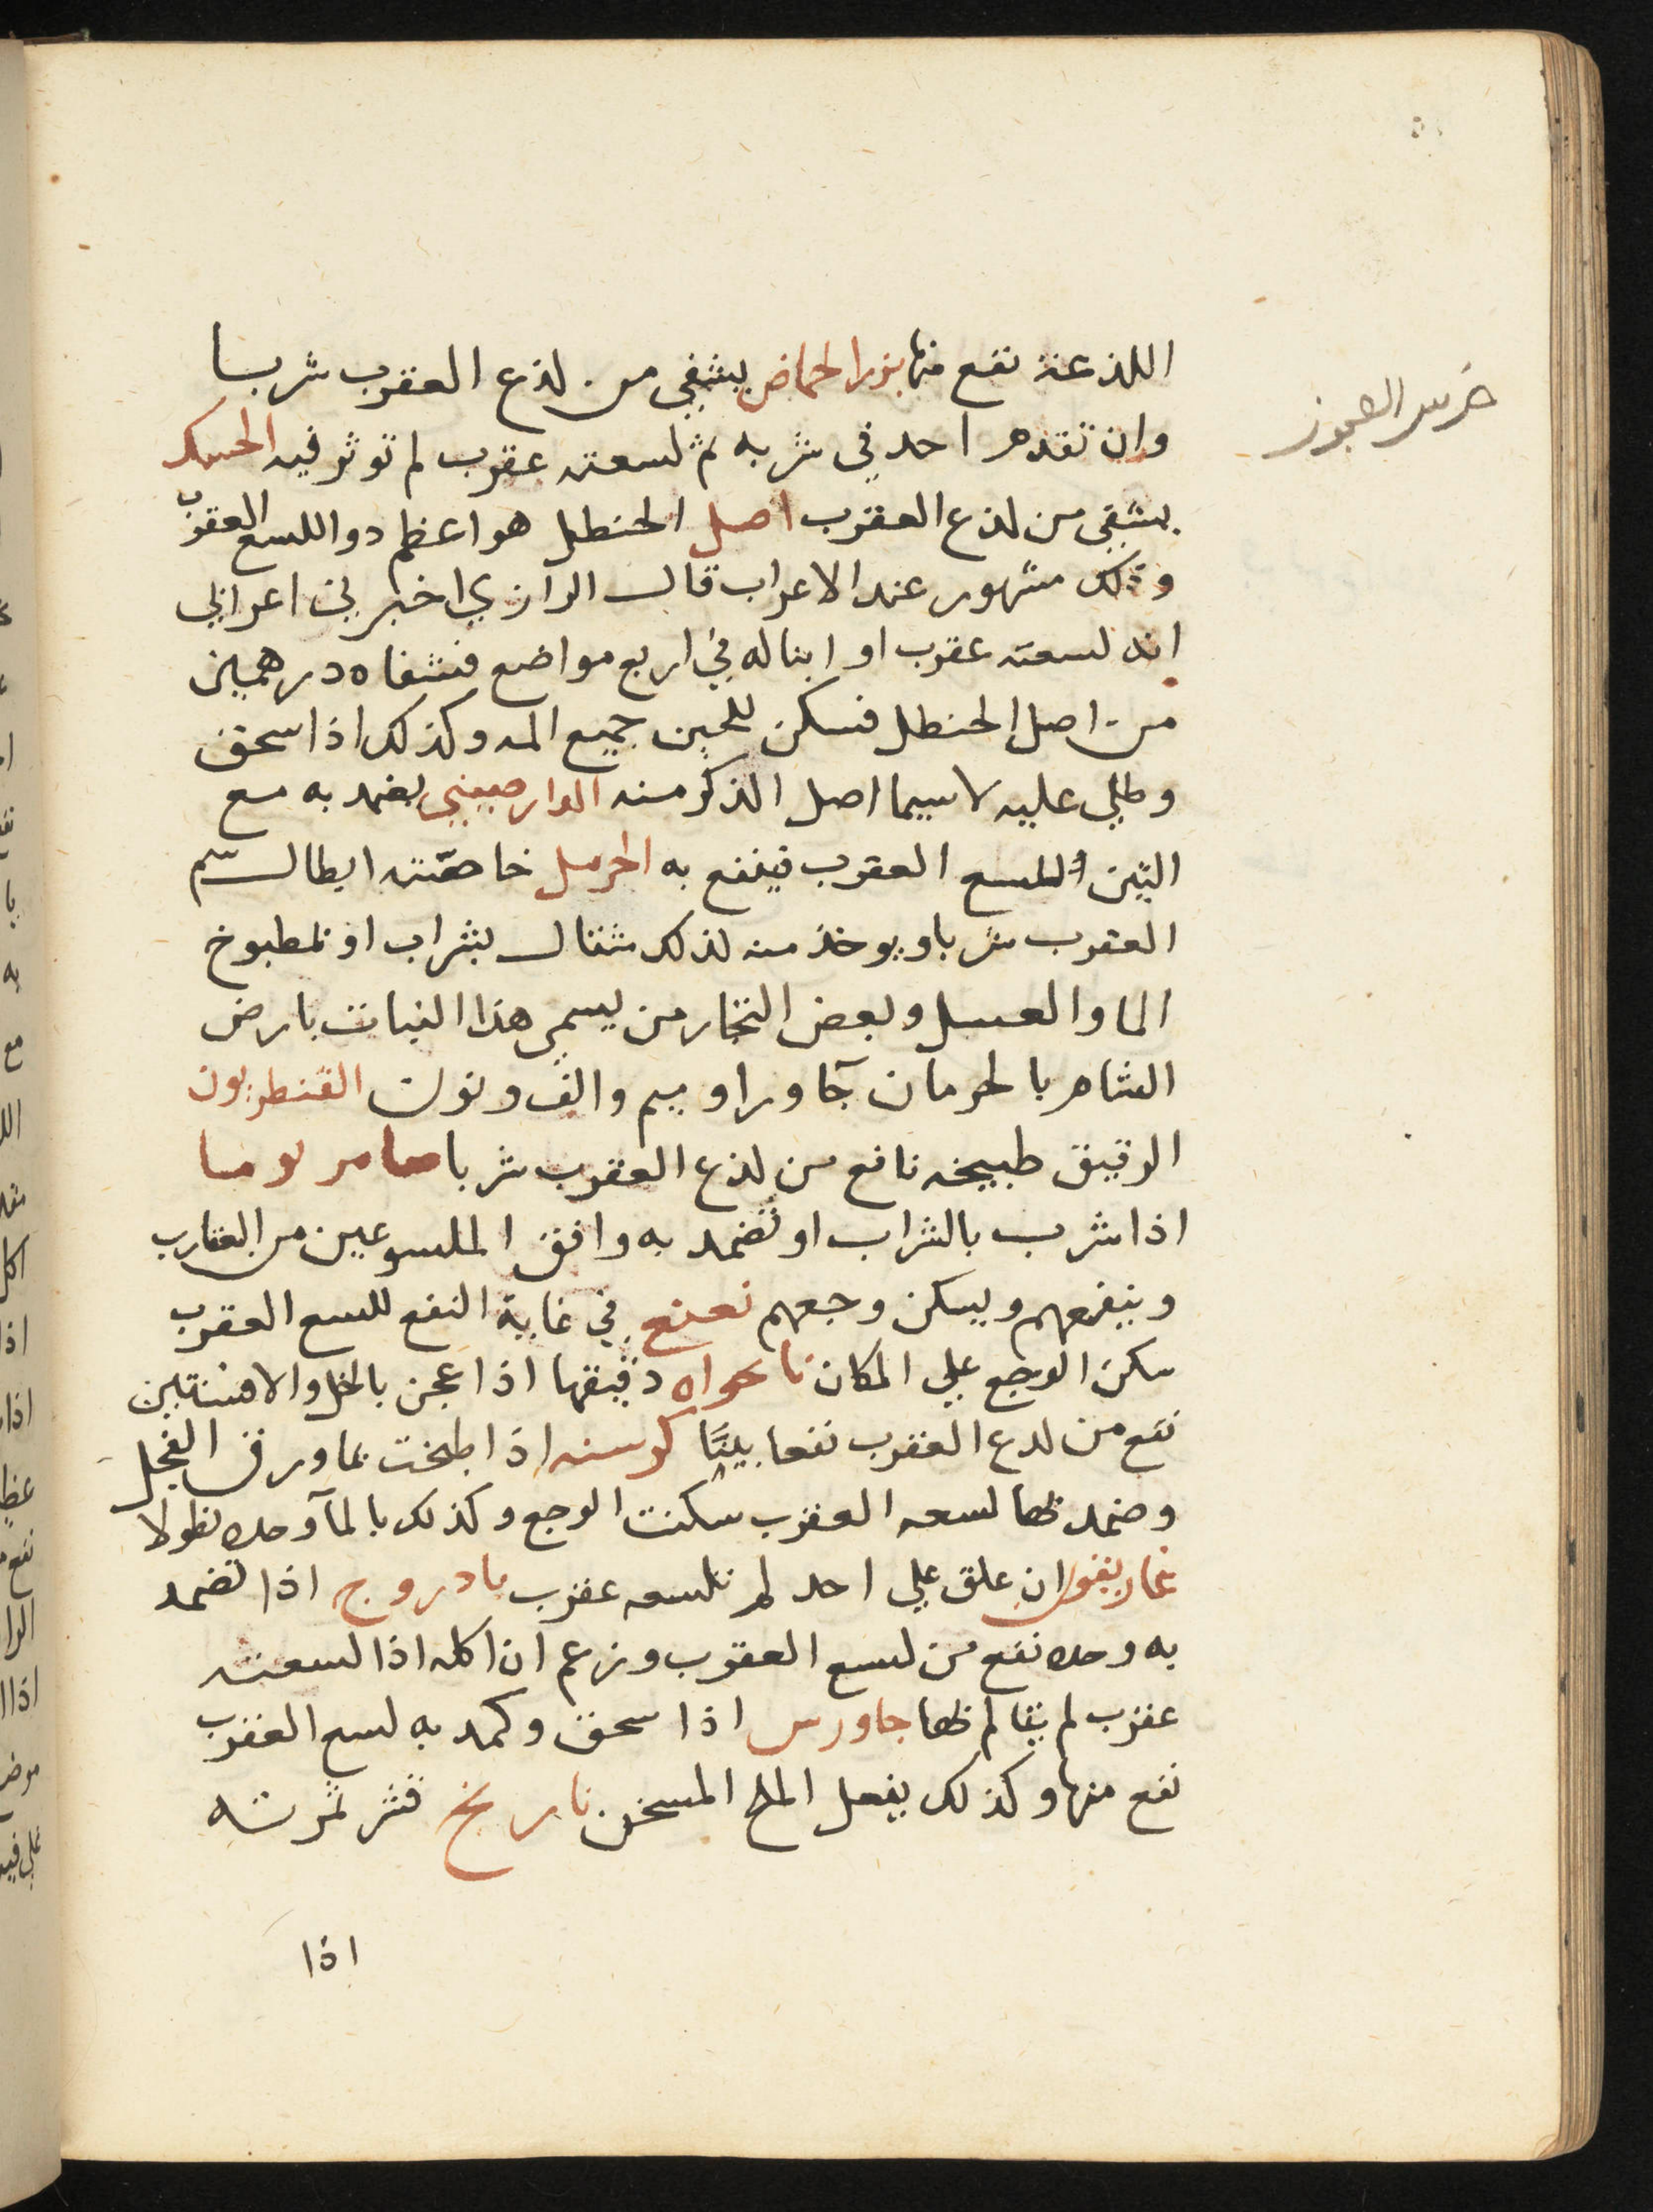 ضرس العجوز
اللذعة نفع منها بزر الحماض يشفي من لذع العقرب شربا
وان تقدم احد في شربه ثم لسعته عقرب لم توثر فيه الحسك
يشفي من لذع العقرب اصل الحنظل هو اعظم دوا للسع العقرب
وذلك مشهور عند الاعراب قال الرازي اخبرني اعرابي
انه لسعته عقرب او ابنا له في اربع مواضع فشفاه درهمين
من اصل الحنظل فسكن للحين جميع المه وكذلك اذا سحق
وطلي عليه لاسيما اصل الذكر منه الدارصيني يضمد به مع
التين للسع العقرب فينفع به الحرمل خاصّته ابطال سم
العقرب شربا ويوخذ منه لذلك مثقال بشراب او بمطبوخ
الما والعسل وبعض التجار من يسمي هذا النبات بارض
الشام بالحرمان بحا ورا وميم والف ونون القنطريون
الرقيق طبيخه نافع من لذع العقرب شربا
اذا شرب بالشراب او تضمد به وافق الملسوعين من العقارب
وينفعهم ويسكن وجعهم نعنع في غاية النفع للسع العقرب
سكن الوجع علي المكان نانحواه دقيقها اذا عجن بالخل والافسنتين
نفع من لدع العقرب نفعا بينًا كرسنه اذا طبخت بما ورق الفجل
وضمد بها لسعه العقرب سكنت الوجع وكذلك بالمآ وحده نطولا
غاريقون ان علق علي احد لم تلسعه عقرب بادروج اذا تضمد
به وحده نفع من لسع العقرب وزعم ان اكله اذا لسعته
عقرب لم يتالم بها جاورس اذا سحق وكمد به لسع العقرب
نفع منها وكذلك يفعل الملح المسخن نارنج قشر ثمرته
اذا